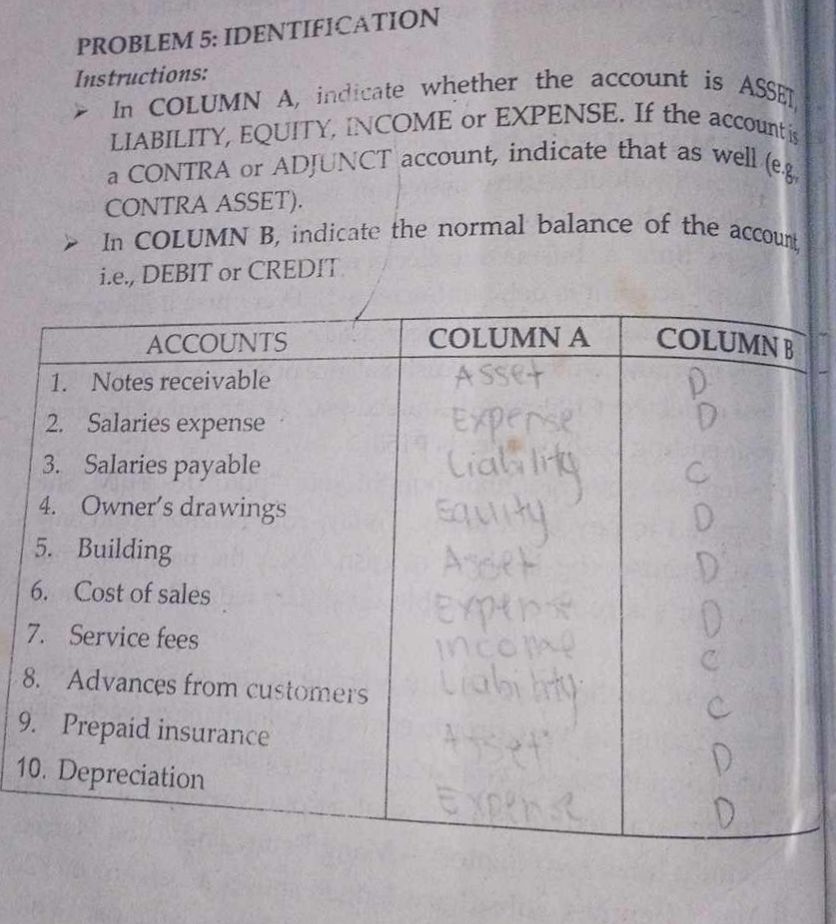 PROBLEM 5: IDENTIFICATION
Instructions:
➤ In COLUMN A, indicate whether the account is ASSET,
LIABILITY, EQUITY, INCOME or EXPENSE. If the account is
a CONTRA or ADJUNCT account, indicate that as well (e.g.,
CONTRA ASSET).
➤ In COLUMN B, indicate the normal balance of the account,
i.e., DEBIT or CREDIT.
ACCOUNTS COLUMN A COLUMN B
1. Notes receivable Asset D
2. Salaries expense Expense D
3. Salaries payable Liability C
4. Owner's drawings Equity D
5. Building Asset D
6. Cost of sales Expense D
7. Service fees income C
8. Advances from customers Liability C
9. Prepaid insurance Asset D
10. Depreciation Expense D